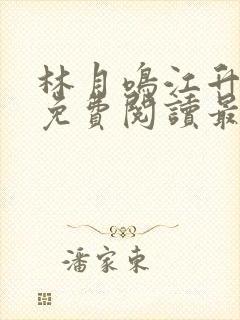 林月鳴江升
免費閱讀最
潘家東